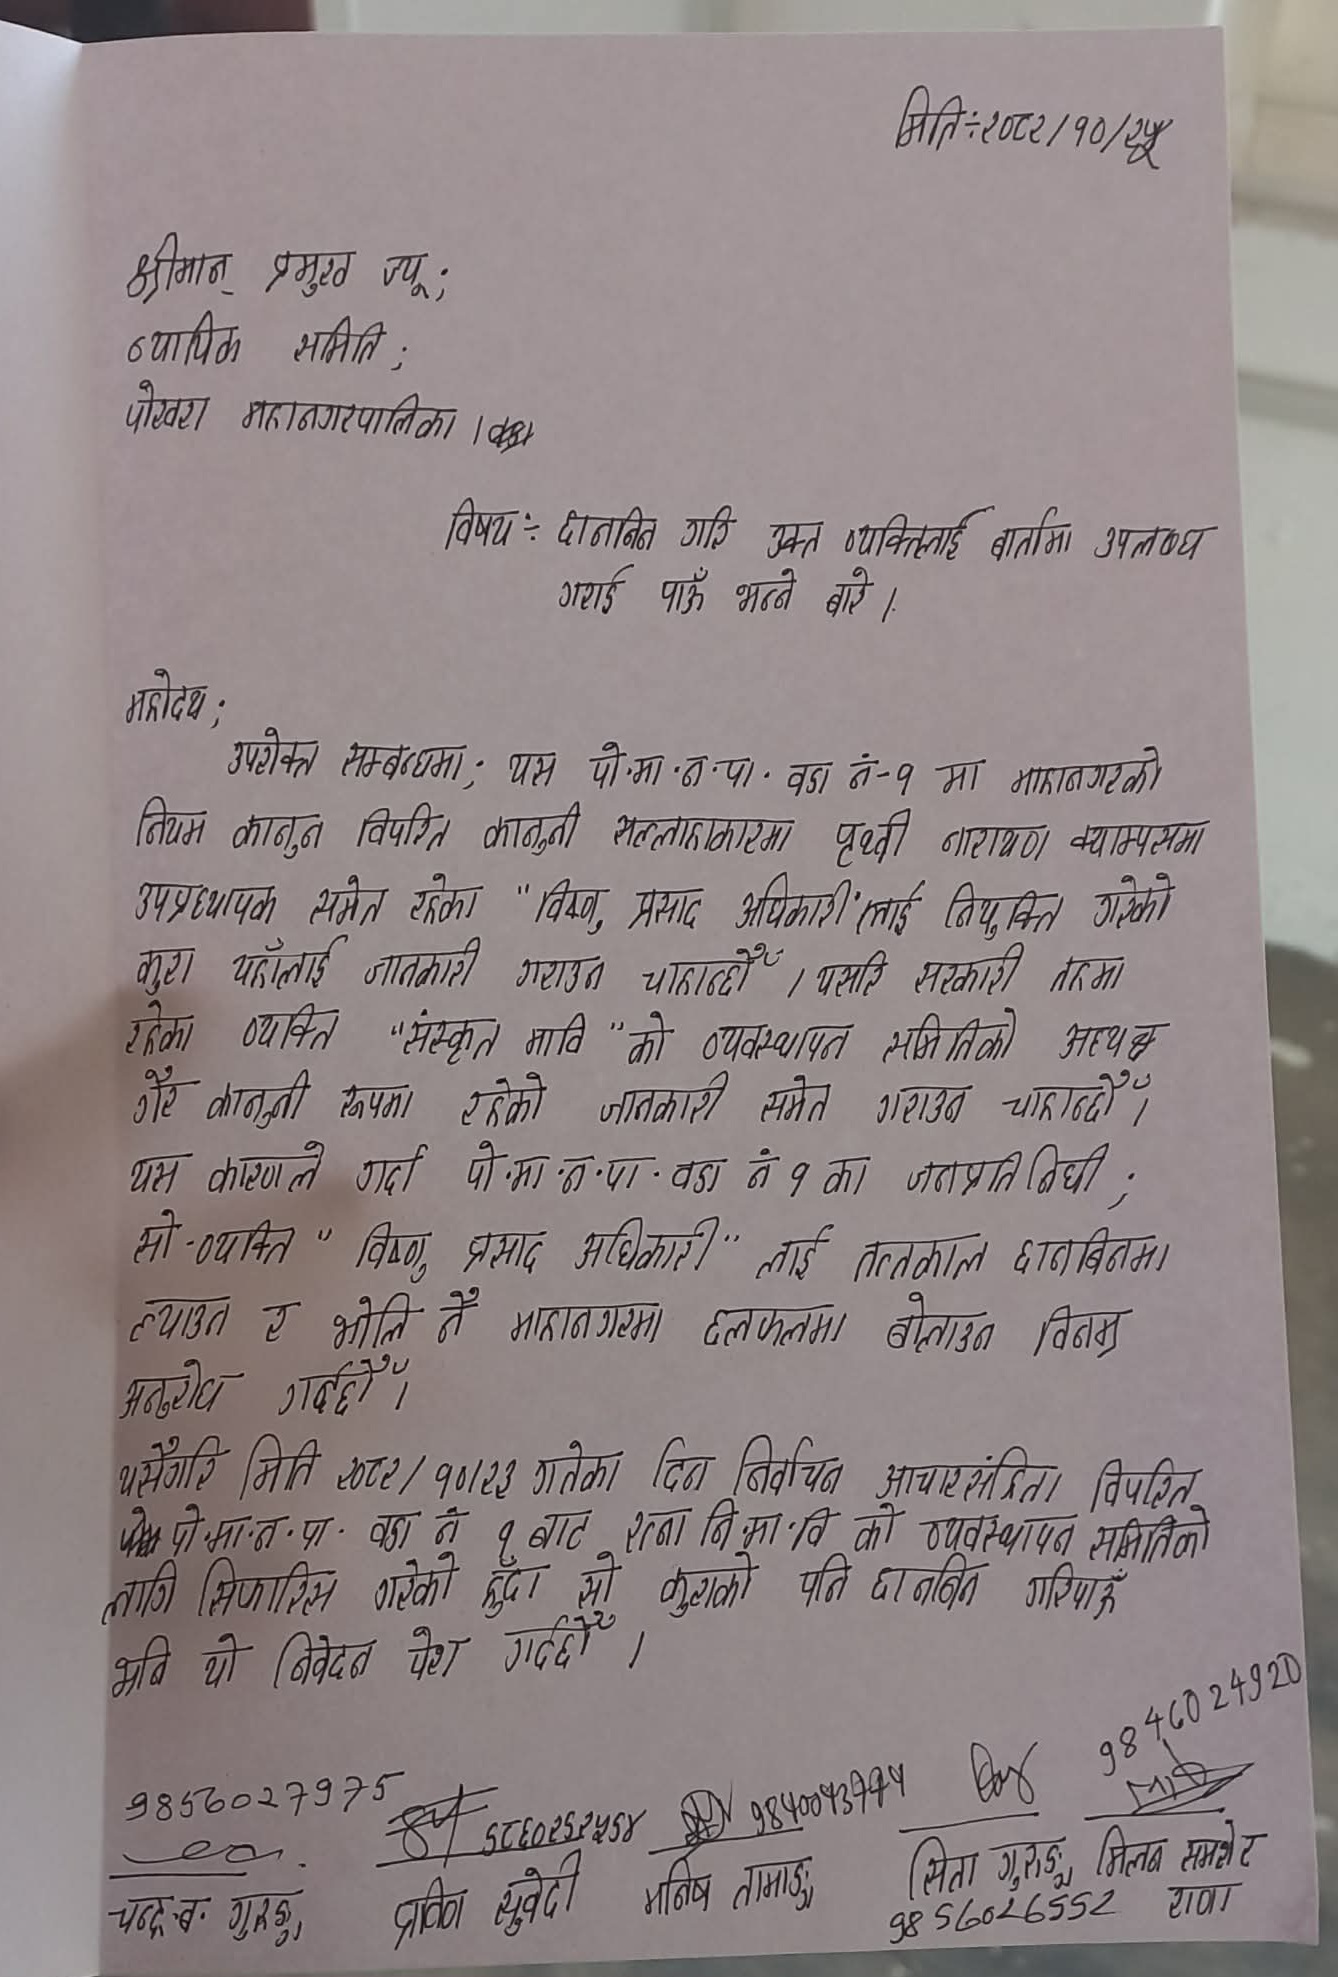 मिति÷२०८२/१०/२५
श्रीमान् प्रमुख ज्यू;
न्यायिक समिति;
पोखरा महानगरपालिका ।
विषय÷ छानबिन गरि उक्त व्यक्तिलाई वार्तामा उपलब्ध
गराई पाऊँ भन्ने बारे ।
महोदय;
उपरोक्त सम्बन्धमा; यस पो.मा.न.पा. वडा नं-१ मा माहानगरको
नियम कानुन विपरित कानुनी सल्लाहाकारमा पृथ्वी नारायण क्याम्पसमा
उपप्रध्यापक समेत रहेका "विष्णु प्रसाद अधिकारी"लाई नियुक्ति गरेको
कुरा यहाँलाई जानकारी गराउन चाहान्छौँ । यसरि सरकारी तहमा
रहेका व्यक्ति "संस्कृत मावि" को व्यवस्थापन समितिको अध्यक्ष
गैर कानुनी रूपमा रहेको जानकारी समेत गराउन चाहान्छौँ ।
यस कारणले गर्दा पो.मा.न.पा. वडा नं १ का जनप्रतिनिधी ;
सो व्यक्ति "विष्णु प्रसाद अधिकारी" लाई तत्तकाल छानबिनमा
ल्याउन र भोलि नै माहानगरमा छलफलमा बोलाउन विनम्र
अनुरोध गर्दछौँ ।
यसैगरि मिति २०८२/१०/२३ गतेका दिन निर्वाचन आचारसंहिता विपरित
पो.मा.न.पा. वडा नं १ बाट रत्न नि.मा.वि को व्यवस्थापन समितिको
लागि सिफारिस गरेको हुँदा सो कुराको पनि छानबिन गरिपाऊँ
भनि यो निवेदन पेश गर्दछौँ ।
9856027975 ९८६०२५२५५४ 9846024920
चन्द्र.ब. गुरुङ्ग प्रविण सुवेदी मनिष तामाङ्ग सिता गुरुङ्ग मिलन समशेर
9856026552 राणा